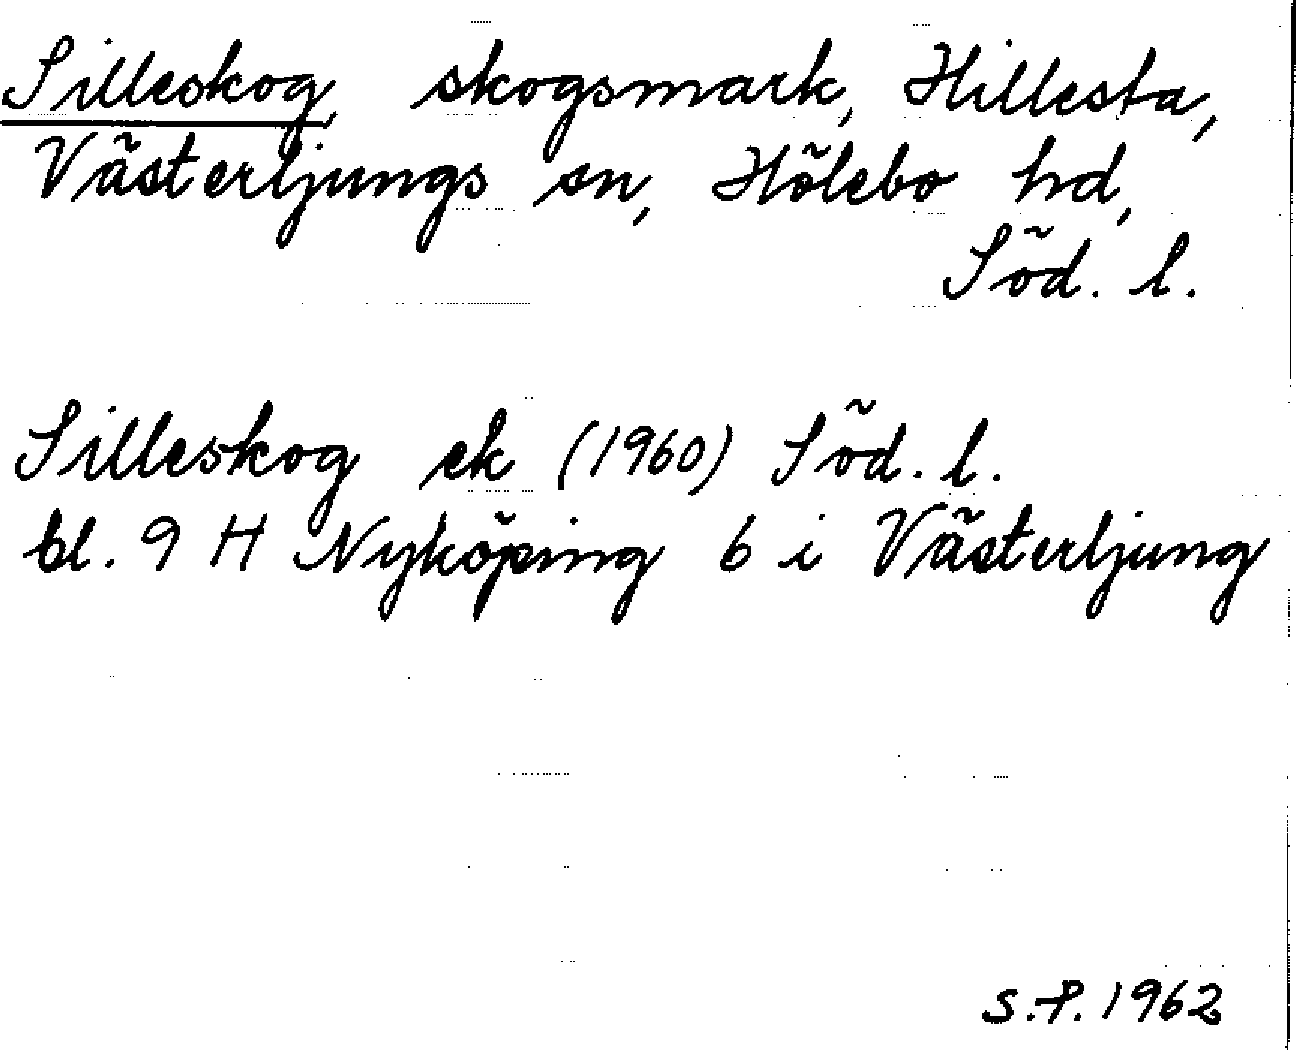 Silleskog, skogsmark, Hillesta,
Västerljungs sn, Hölebo hd,
Söd. l.
Silleskog ek (1960) Söd. l.
bl. 9 H Nyköping 6 i Västerljung
S.P. 1962